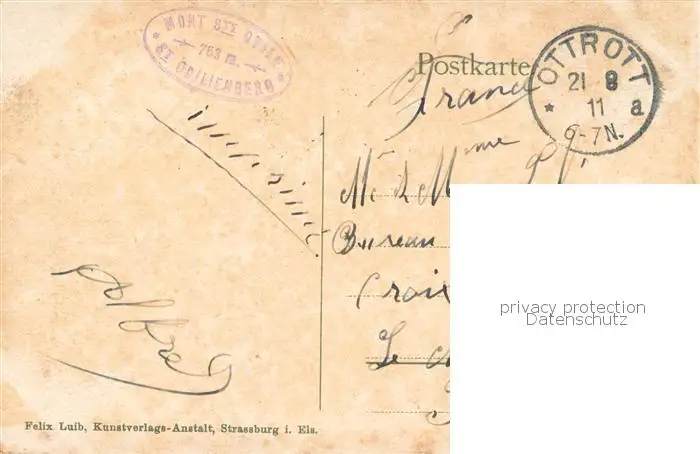 MONT STE ODILE
763 m.
ST ODILIENBERG
Postkarte
OTTROTT
21 8
11 a
6-7N.
France
imprimé
Mr & Mme
Bureau
Croix
Le
Alfred
privacy protection
Datenschutz
Felix Luib, Kunstverlags-Anstalt, Strassburg i. Els.